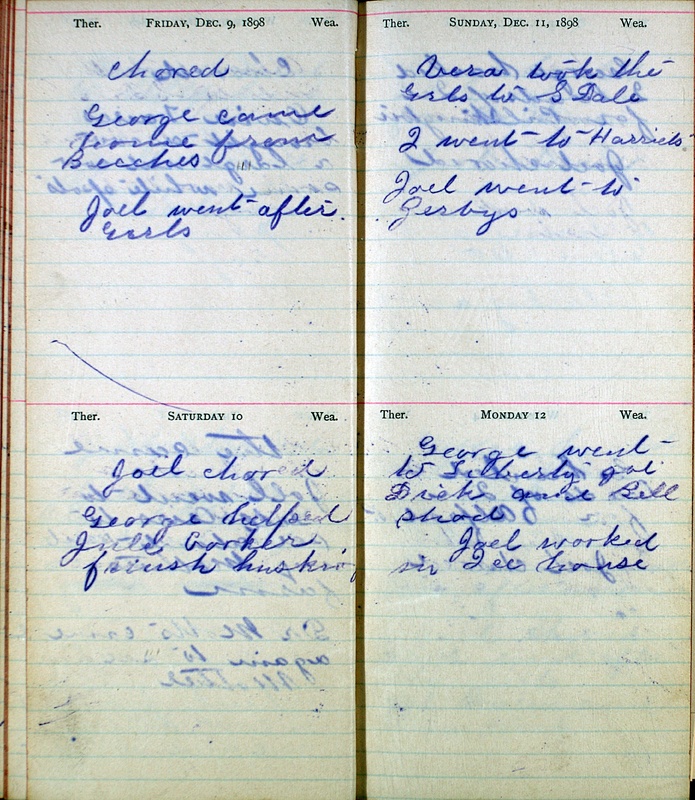 Ther. FRIDAY, DEC. 9, 1898 Wea.
Chored
George came
home from
Beeches
Joel went after
Girls
Ther. SATURDAY 10 Wea.
Joel chored
George helped
Jule Corker
finish husking
Ther. SUNDAY, DEC. 11, 1898 Wea.
Vera took the
Girls to S Dale
I went to Harriets
Joel went to
Zerbys
Ther. MONDAY 12 Wea.
George went
to Liberty got
Dick and Bell
shod
Joel worked
in Ice house